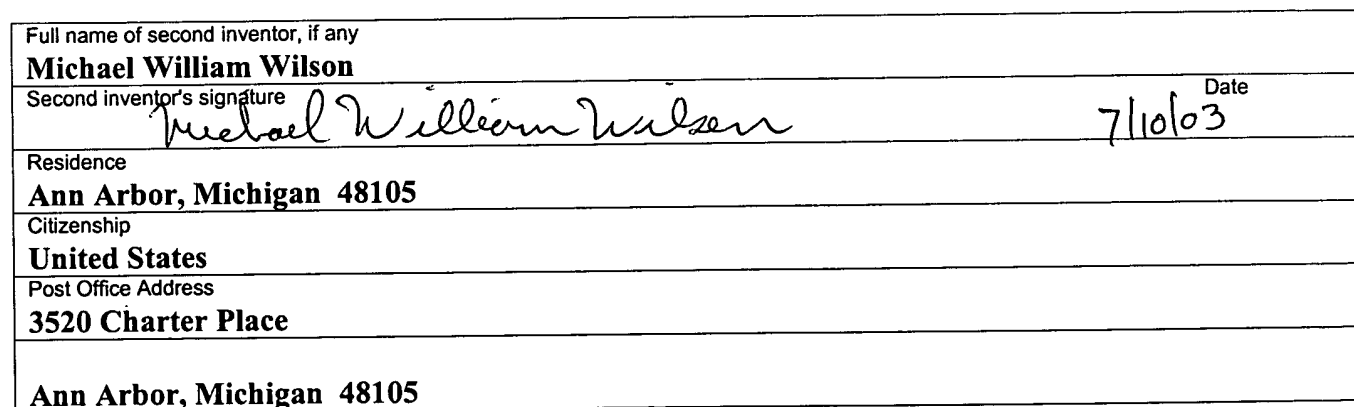 Full name of second inventor, if any
Michael William Wilson
Second inventor's signature
Michael William Wilson
Date
7/10/03
Residence
Ann Arbor, Michigan 48105
Citizenship
United States
Post Office Address
3520 Charter Place
Ann Arbor, Michigan 48105